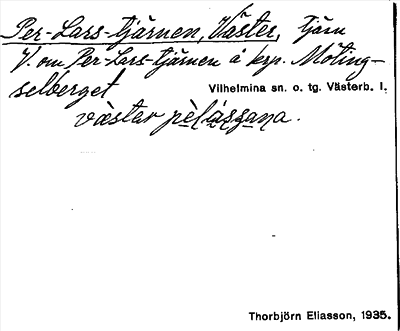 Per-Lars-tjärnen, Väster, tjärn
V. om Per-Lars-tjärnen å krp. Möting-
selberget
Vilhelmina sn. o. tg. Västerb. l.
väster
Thorbjörn Eliasson, 1935.